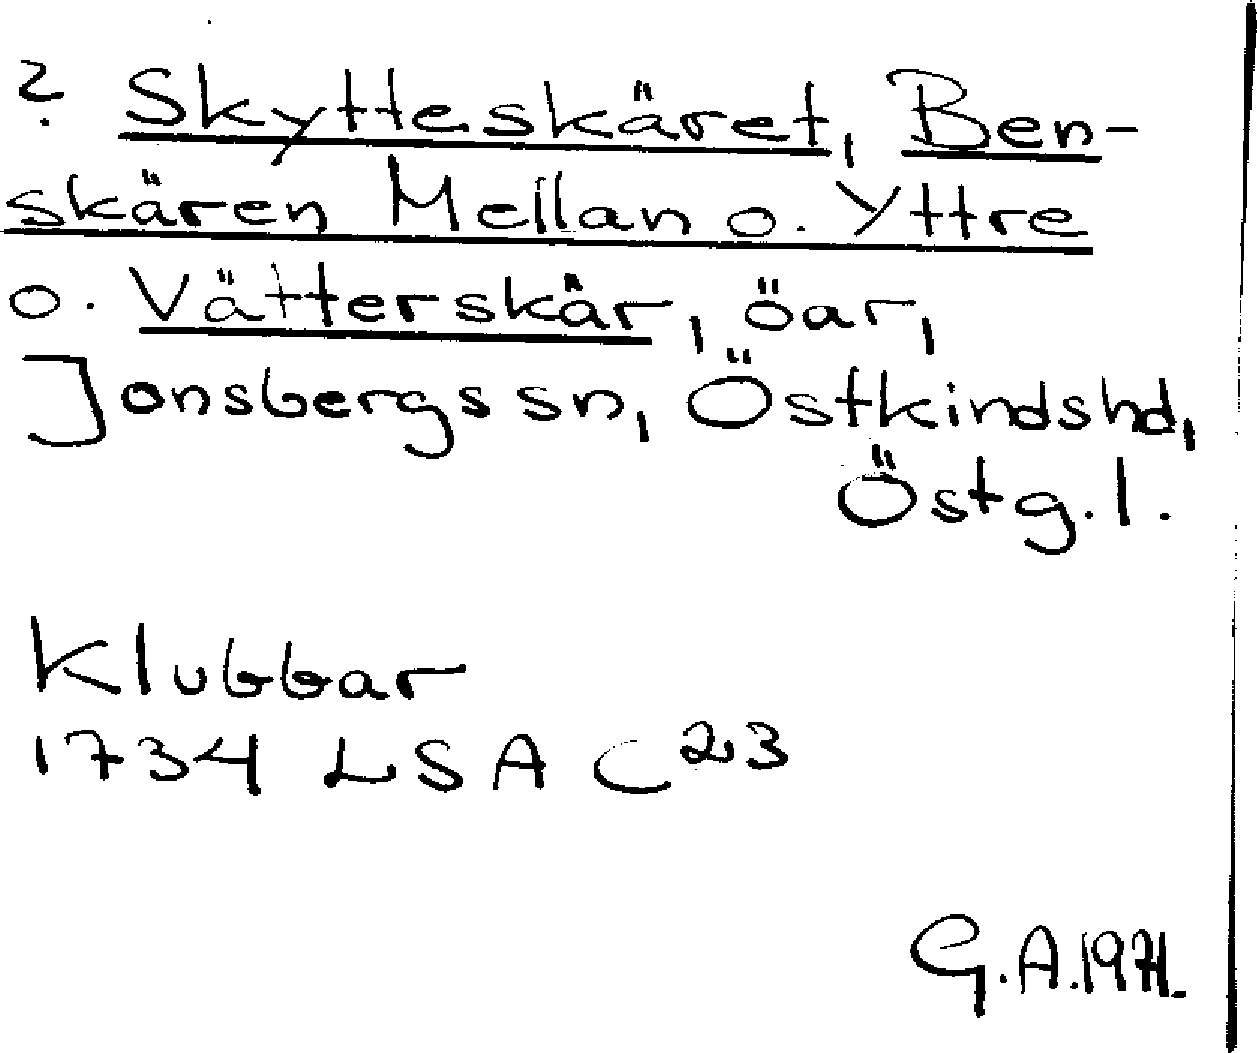 ? Skytteskäret, Ben-
skären Mellan o. Yttre
o. Vätterskär, öar,
Jonsbergs sn, Östkindshd,
Östg.l.
Klubbar
1734 LSA C23
G.A.1971.